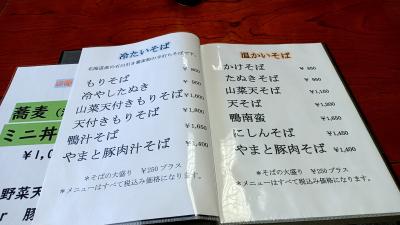 冷たいそば
北海道産の石臼引き蕎麦粉の手打ちそばです。
もりそば ￥800
冷やしたぬき ￥900
山菜天付きもりそば ￥1,600
天付きもりそば ￥1,800
鴨汁そば ￥1,650
やまと豚肉汁そば ￥1,400
＊そばの大盛り ￥250プラス
＊メニューはすべて税込み価格になります。
温かいそば
かけそば ￥800
たぬきそば ￥900
山菜天そば ￥1,600
天そば
鴨南蛮 ￥1,650
にしんそば ￥1,400
やまと豚肉そば ￥1,400
＊そばの大盛り ￥250プラス
＊メニューはすべて税込み価格になります。
蕎麦
ミニ丼
野菜天
豚